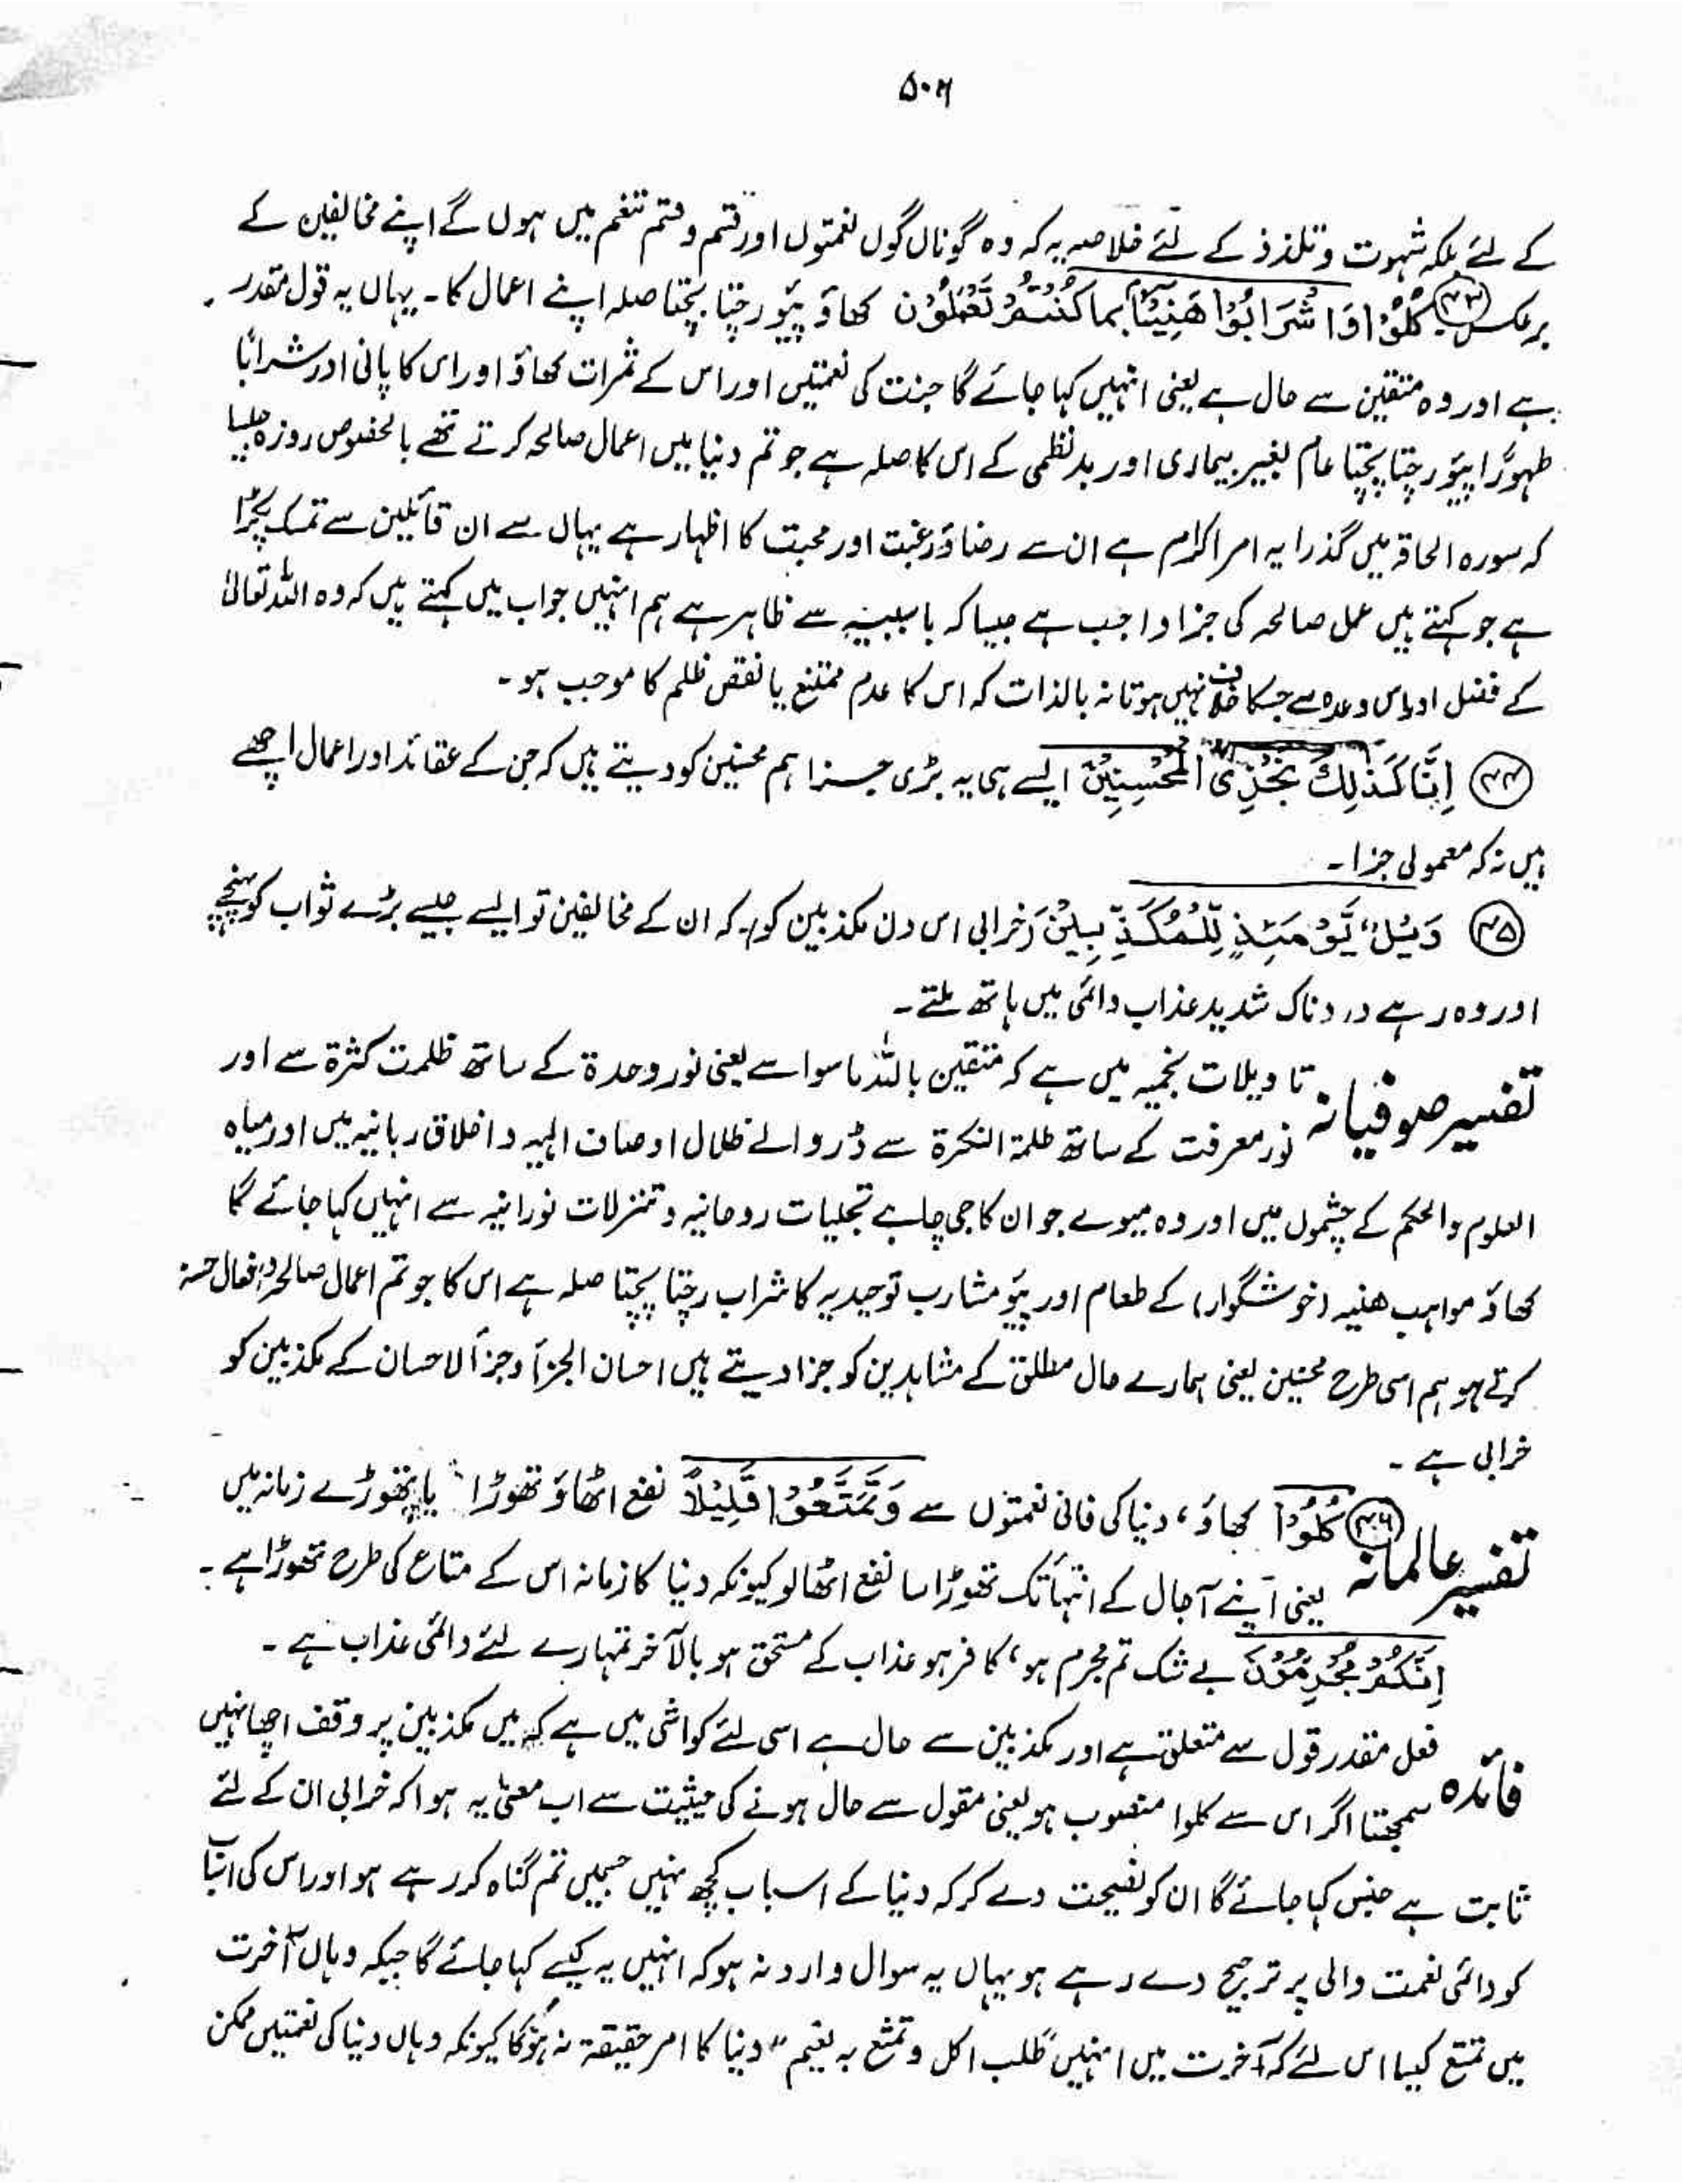 ۵۰۶
کے لئے بلکہ شہوت و تلذذ کے لئے خلاصہ یہ کہ وہ گوناں گوں نعمتوں اور قتم و قتم تنغم میں ہوں گے اپنے مخالفین کے
برعکس۔ (۴۳) كُلُوْا وَا شْرَابُوْا هَنِيْئًا بما كُنْتُمْ تَعْمَلُوْن کھاؤ پیؤ رچتا پچتا صلہ اپنے اعمال کا۔ یہاں یہ قول مقدر
ہے اور وہ متقین سے حال ہے یعنی انہیں کہا جائے گا جنت کی نعمتیں اور اس کے ثمرات کھاؤ اور اس کا پانی اور شرابًا
طہورًا پیؤ رچتا پچتا عام بغیر بیماری اور بدنظمی کے اس کا صلہ ہے جو تم دنیا میں اعمال صالحہ کرتے تھے بالخصوص روزہ جیسا
کہ سورہ الحاقہ میں گذرا یہ امر اکرام ہے ان سے رضاؤ رغبت اور محبت کا اظہار ہے یہاں سے ان قائلین سے تمسک پکڑا
ہے جو کہتے ہیں عمل صالحہ کی جزا واجب ہے جیسا کہ باسببیہ سے ظاہر ہے ہم انہیں جواب میں کہتے ہیں کہ وہ اللہ تعالیٰ
کے فضل اور اس وعدہ سے جسکا خلاف نہیں ہوتا نہ بالذات کہ اس کا عدم ممتنع یا نقص ظلم کا موجب ہو۔
(۴۴) اِنَّا كَذٰلِكَ نَجْزِى الْمُحْسِنِيْنَ ایسے ہی یہ بڑی جزا ہم محسنین کو دیتے ہیں کہ جن کے عقائد اور اعمال اچھے
ہیں نہ کہ معمولی جزا۔
(۴۵) وَيْلٌ يَّوْمَئِذٍ لِّلْمُكَذِّبِيْنَ خرابی اس دن مکذبین کو اہ کہ ان کے مخالفین تو ایسے جیسے بڑے ثواب کو پہنچے
اور وہ رہے دردناک شدید عذاب دائمی میں ہاتھ ملتے۔
تفسیر صوفیانہ تاویلات نجمیہ میں ہے کہ متقین باللہ ماسوا سے یعنی نور وحدۃ کے ساتھ ظلمت کثرۃ سے اور
نور معرفت کے ساتھ ظلمۃ النکرۃ سے ڈرو الے ظلال اوصاف الہیہ و اخلاق ربانیہ میں اور میاہ
العلوم والحکم کے چشموں میں اور وہ میوے جو ان کا جی چاہے تجلیات روحانیہ و تنزلات نورانیہ سے انہیں کہا جائے گا
کھاؤ مواہب ھنیہ (خوشگوار) کے طعام اور پیؤ مشارب توحیدیہ کا شراب رچتا پچتا صلہ ہے اس کا جو تم اعمال صالحہ و افعال حسنہ
کرتے ہو ہم اسی طرح محسنین یعنی ہمارے حال مطلق کے مشاہدین کو جزا دیتے ہیں احسان الجزأ وجزأ لاحسان کے مکذبین کو
خرابی ہے۔
تفسیر عالمانہ (۴۶) كُلُوْا کھاؤ، دنیا کی فانی نعمتوں سے وَتَمَتَّعُوْا قَلِيْلًا نفع اٹھاؤ تھوڑا یا تھوڑے زمانہ میں
یعنی اپنے آجال کے انتہأ تک تھوڑا سا نفع اٹھالو کیونکہ دنیا کا زمانہ اس کے متاع کی طرح تھوڑا ہے۔
اِنَّكُمْ مُّجْرِمُوْنَ بے شک تم مجرم ہو، کافر ہو عذاب کے مستحق ہو بالآخر تمہارے لئے دائمی عذاب ہے۔
فائدہ فعل مقدر قول سے متعلق ہے اور مکذبین سے حال ہے اسی لئے کواشی میں ہے کہ میں مکذبین پر وقف اچھا نہیں
سمجھتا اگر اس سے کلوا منصوب ہو یعنی مقول سے حال ہونے کی حیثیت سے اب معنی یہ ہوا کہ خرابی ان کے لئے
ثابت ہے جنہیں کہا جائے گا ان کو نصیحت دے کر کہ دنیا کے اسباب کچھ نہیں جسمیں تم گناہ کر رہے ہو اور اس کی
کو دائمی نعمت والی پر ترجیح دے رہے ہو یہاں یہ سوال وارد نہ ہو کہ انہیں یہ کیسے کہا جائے گا جبکہ وہاں آخرت
میں تمتع کیسا اس لئے کہ آخرت میں انہیں "طلب اکل و تمتع بہ نعیم" دنیا کا امر حقیقۃ نہ ہوگا کیونکہ وہاں دنیا کی نعمتیں ممکن